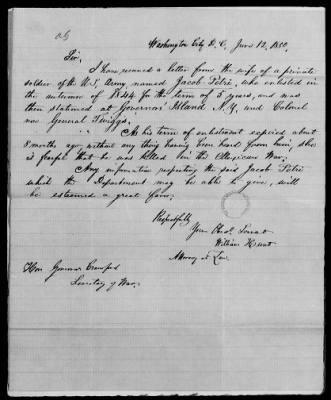 Washington City D. C. June 12, 1850.
Sir,
I have received a letter from the wife of a private
soldier of the U.S. Army named Jacob Petrie, who enlisted in
the autumn of 1844 for the term of 5 years, and was
then stationed at Governors Island N.Y. und Colonel
now General Twiggs.
As his term of enlistment expired about
8 months ago, without any thing having been heard from him, she
is fearful that he was killed in the Mexican War.
Any information respecting the said Jacob Petrie
which the Department may be able to give, will
be esteemed a great favor.
Respectfully
Your Obedt. Servant
William Hunt
Attorney at Law.
Hon Crawford
Secretary of War.